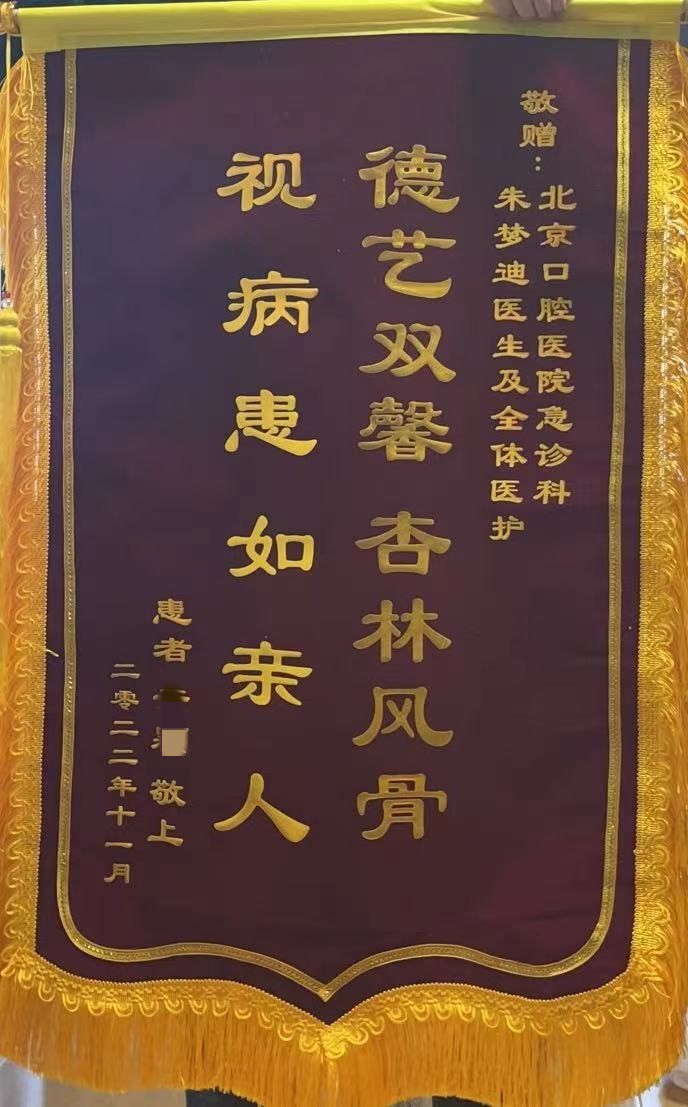 敬赠：
北京口腔医院急诊科
朱梦迪医生及全体医护
德艺双馨 杏林风骨
视病患如亲人
患者 敬上
二零二二年十一月